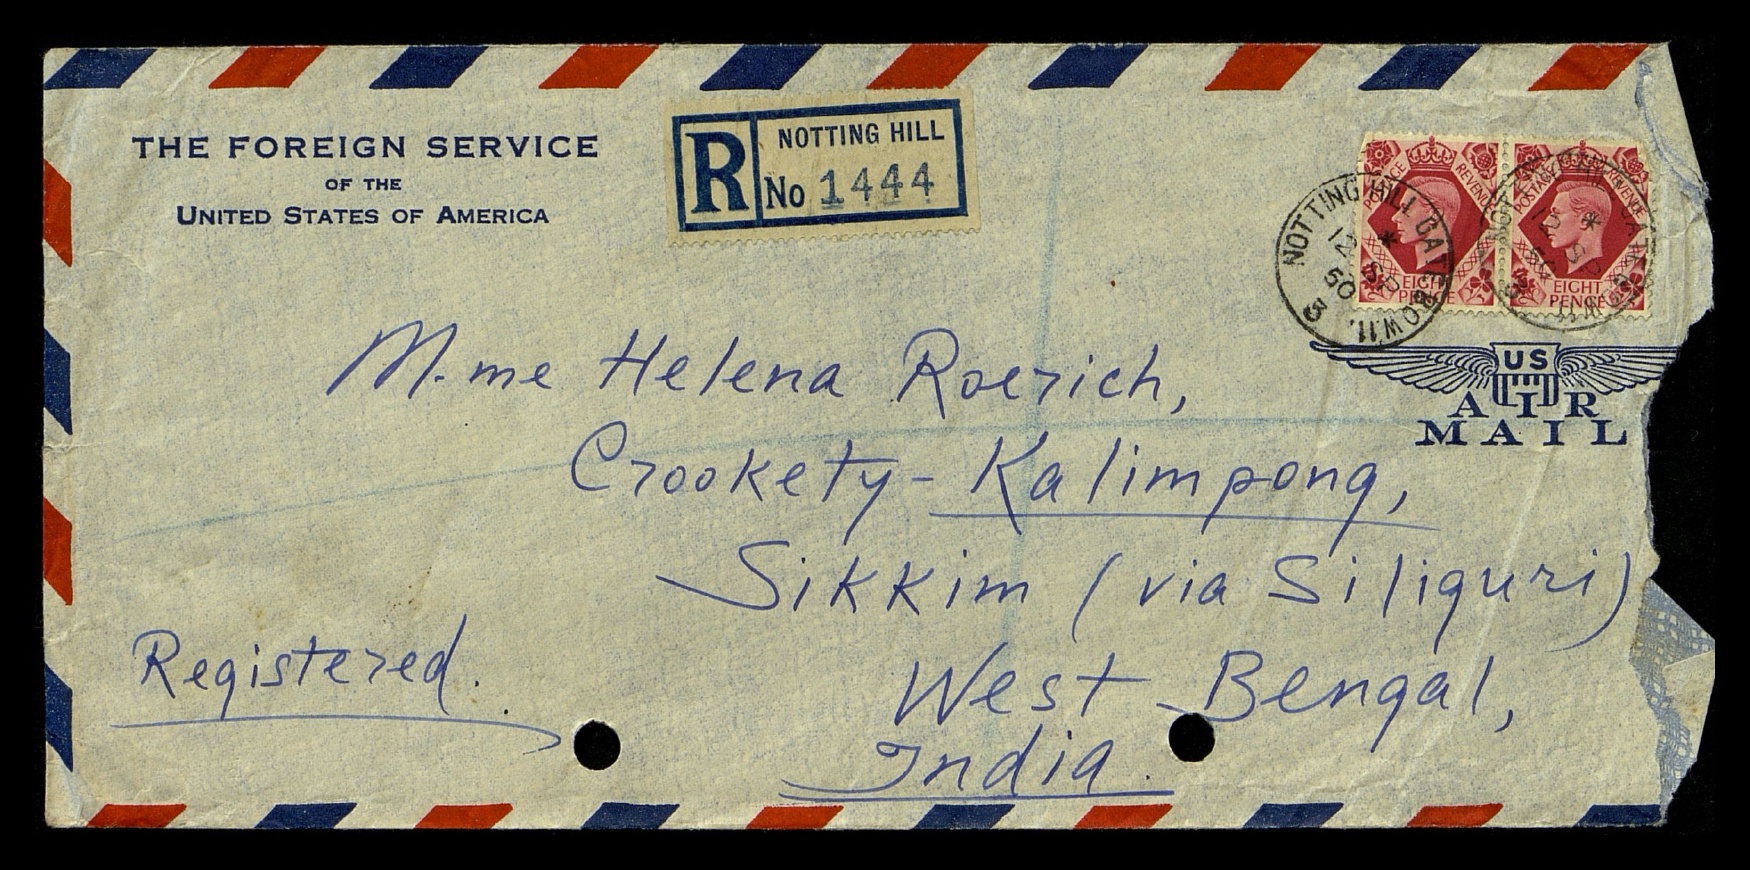 THE FOREIGN SERVICE
OF THE
UNITED STATES OF AMERICA
R
NOTTING HILL
No 1444
POSTAGE REVENUE
EIGHT
PENCE
POSTAGE REVENUE
EIGHT
PENCE
NOTTING HILL GATE B.O. W.11.
12 SP
50
US
AIR
MAIL
M-me Helena Roerich,
Crookety-Kalimpong,
Sikkim (via Siliguri)
West Bengal,
India.
Registered.